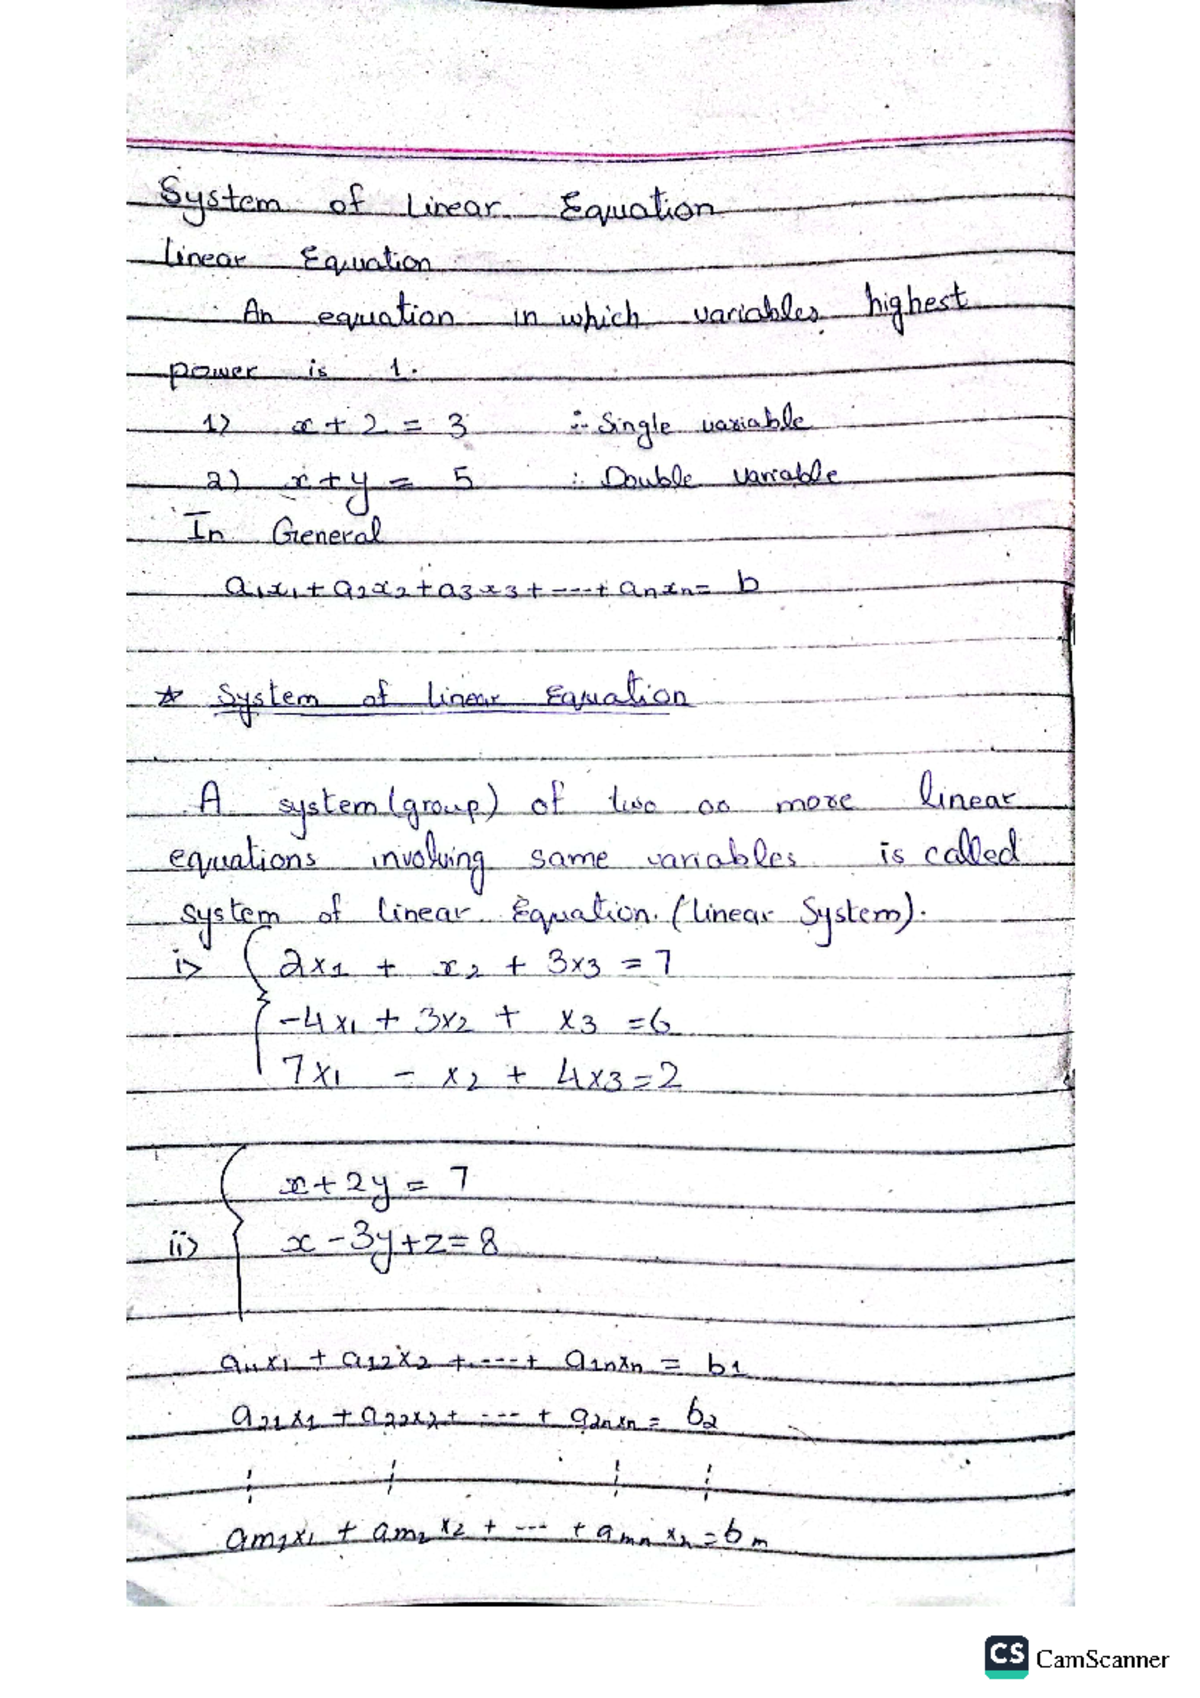 System of Linear Equation
Linear Equation
An equation in which variables highest
power is 1.
1) x + 2 = 3 ∴ Single variable
2) x + y = 5 ∴ Double variable
In General
a₁x₁ + a₂x₂ + a₃x₃ + ---- + aₙxₙ = b
☆ System of linear Equation
A system (group) of two oo more linear
equations involving same variables is called
system of linear Equation. (linear System).
i> { 2x₁ + x₂ + 3x₃ = 7
-4x₁ + 3x₂ + x₃ = 6
7x₁ - x₂ + 4x₃ = 2
{ x + 2y = 7
ii> x - 3y + z = 8
a₁₁x₁ + a₁₂x₂ + ---- + a₁ₙxₙ = b₁
a₂₁x₁ + a₂₂x₂ + --- + a₂ₙxₙ = b₂
¦ ¦ ¦ ¦
aₘ₁x₁ + aₘ₂x₂ + --- + aₘₙxₙ = bₘ
CS CamScanner